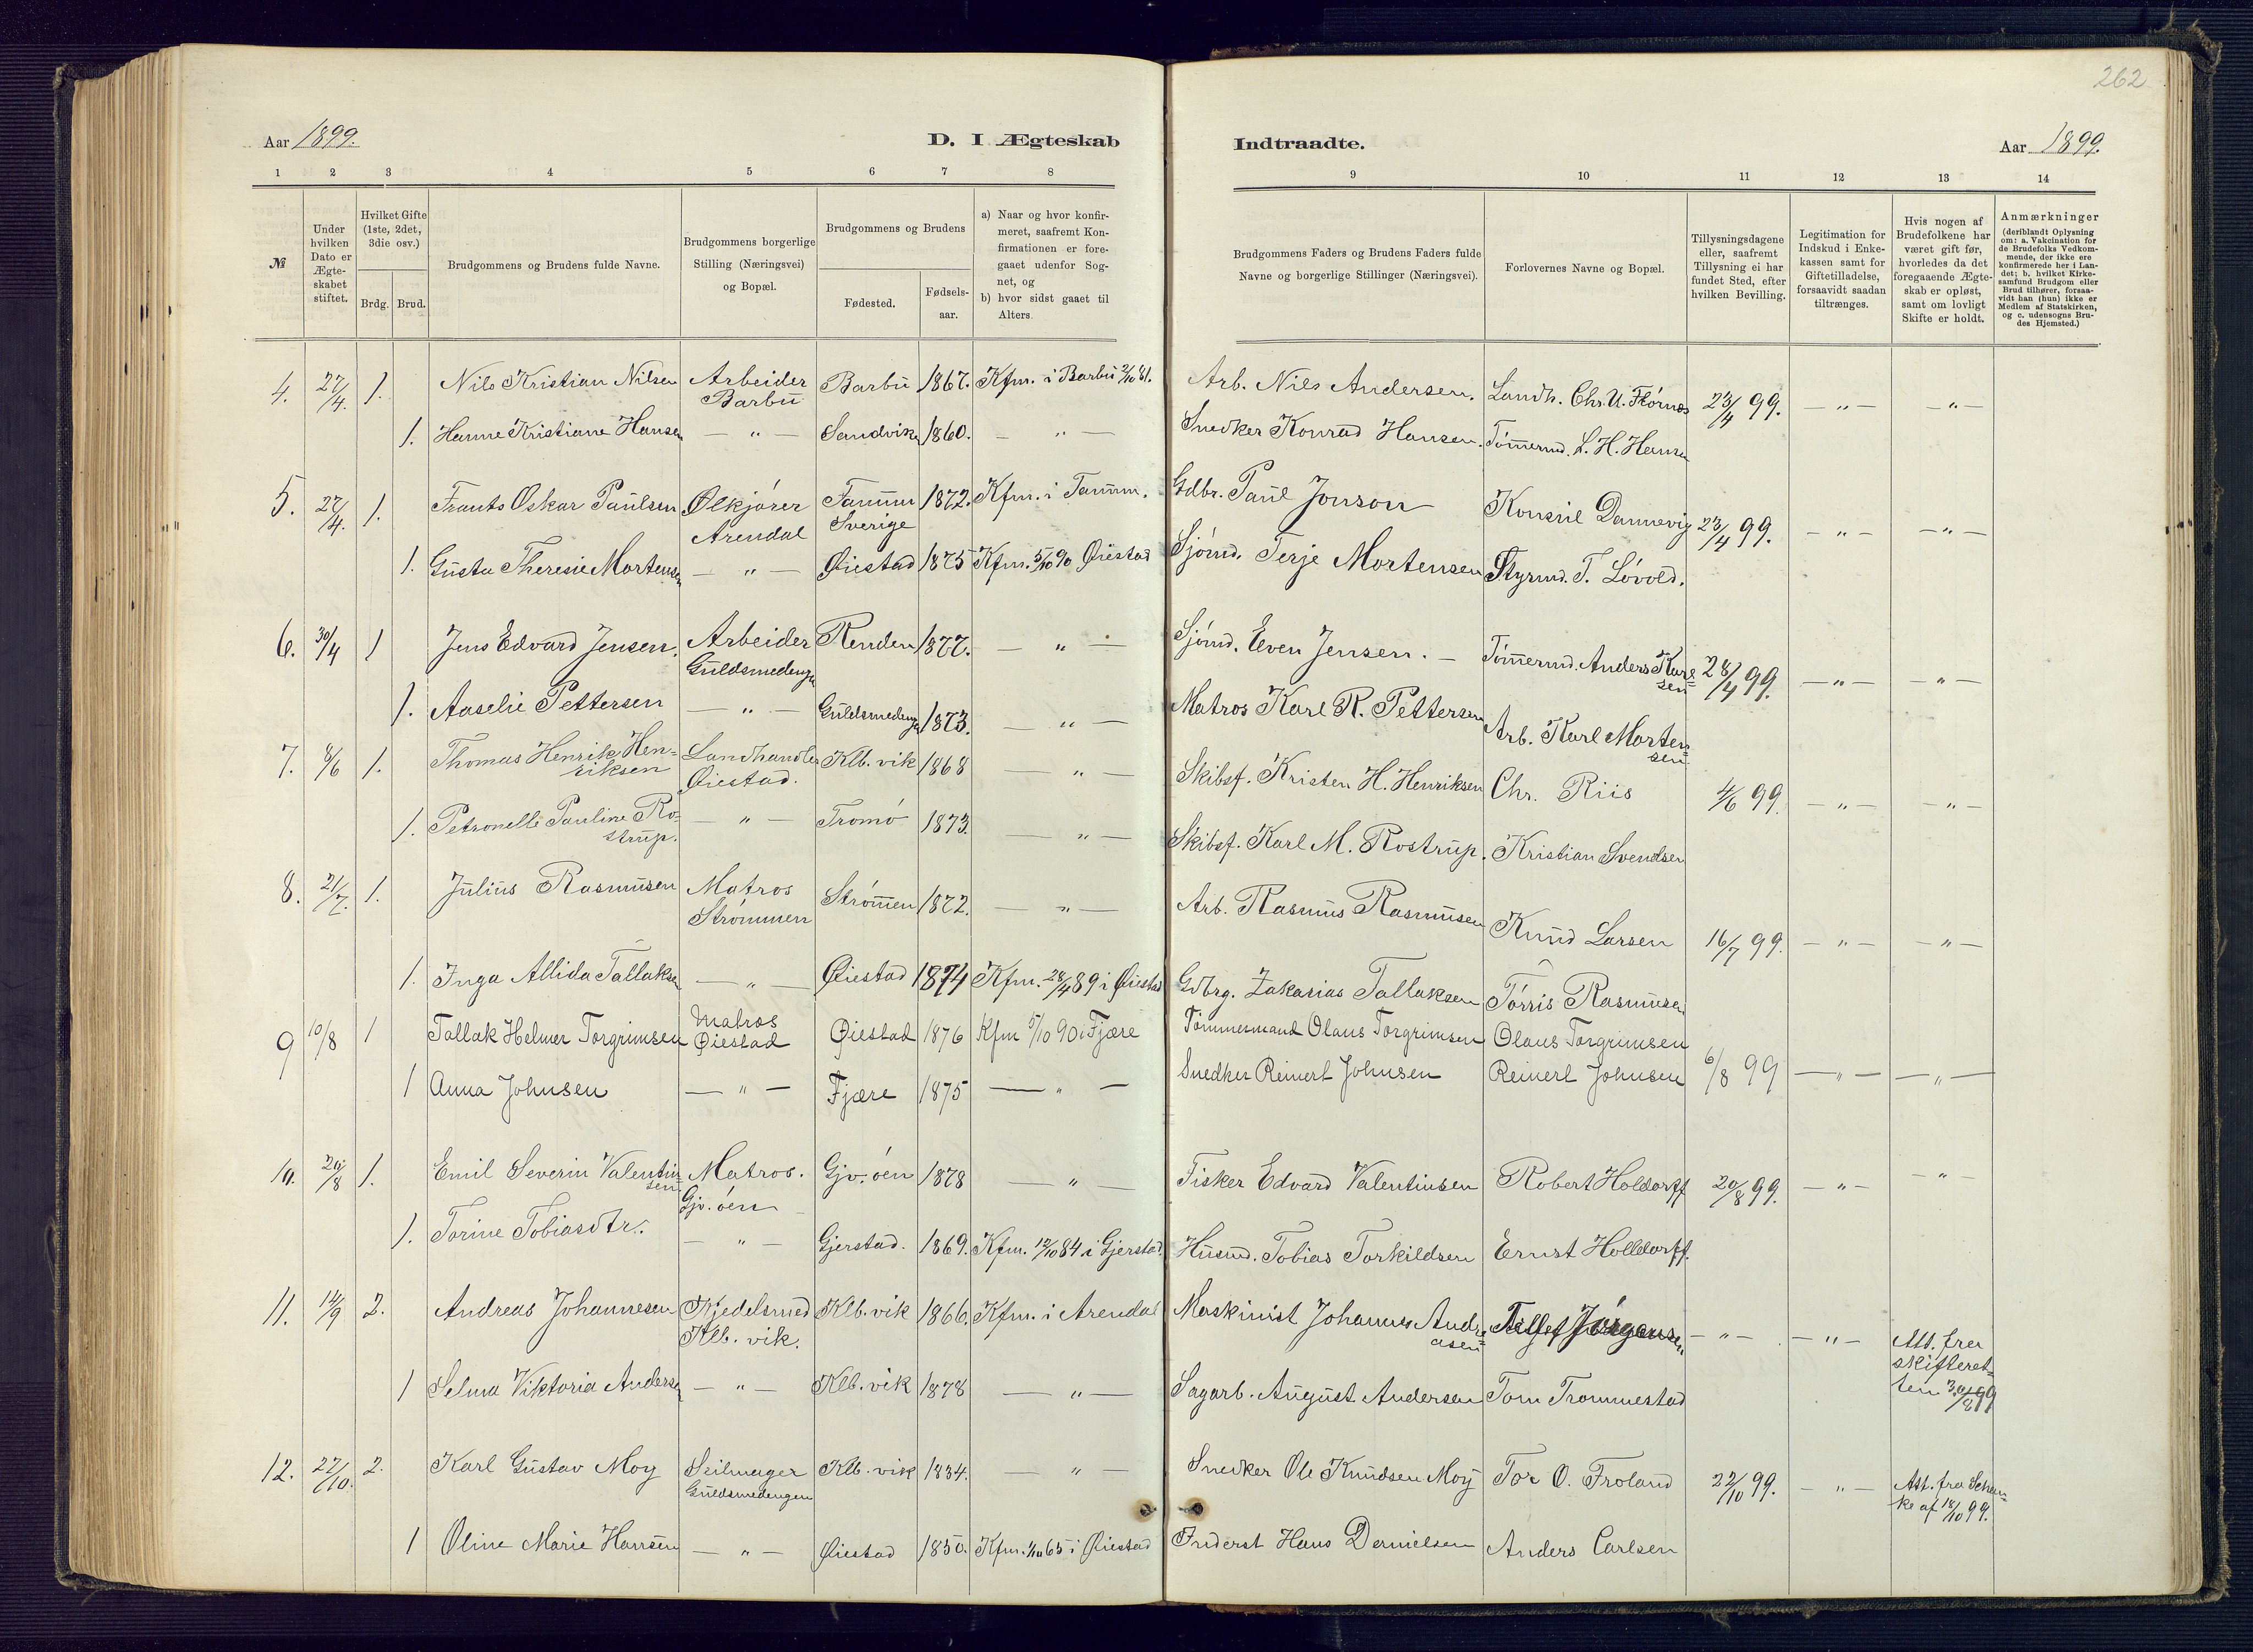 262
Aar 1899.
D. I Ægteskab
Indtraadte.
Aar 1899.
1 2 3 4 5 6 7 8 9 10 11 12 13 14
№
Under
hvilken
Dato er
Ægte-
skabet
stiftet.
Hvilket Gifte
(1ste, 2det,
3die osv.)
Brdg. Brud.
Brudgommens og Brudens fulde Navne.
Brudgommens borgerlige
Stilling (Næringsvei)
og Bopæl.
Brudgommens og Brudens
Fødested.
Fødsels-
aar.
a) Naar og hvor konfir-
meret, saafremt Kon-
firmationen er fore-
gaaet udenfor Sog-
net, og
b) hvor sidst gaaet til
Alters.
Brudgommens Faders og Brudens Faders fulde
Navne og borgerlige Stillinger (Næringsvei).
Forlovernes Navne og Bopæl.
Tillysningsdagene
eller, saafremt
Tillysning ei har
fundet Sted, efter
hvilken Bevilling.
Legitimation for
Indskud i Enke-
kassen samt for
Giftetilladelse,
forsaavidt saadan
tiltrænges.
Hvis nogen af
Brudefolkene har
været gift før,
hvorledes da det
foregaaende Ægte-
skab er opløst,
samt om lovligt
Skifte er holdt.
Anmærkninger
(deriblandt Oplysning
om: a. Vakcination for
de Brudefolks Vedkom-
mende, der ikke ere
konfirmerede her i Lan-
det; b. hvilket Kirke-
samfund Brudgom eller
Brud tilhører, forsaa-
vidt han (hun) ikke er
Medlem af Statskirken,
og c. udensogns Bru-
des Hjemsted.)
4. 27/4. 1. Nils Kristian Nilsen Arbeider Barbu 1867. Kfm. i Barbu 2/10 81. Arb. Nils Andersen. Landh. Chr. U. Flørnæs 23/4 99. — " — — " —
Barbu
1. Hanne Kristiane Hansen — " — Sandvika 1860. — " — Snedker Konrad Hansen. Tømermd. L. H. Hansen
5. 27/4. 1. Frants Oskar Paulsen Ølkjører Tanum 1872. Kfm. i Tanum. Gdbr. Paul Jonson Konsul Dannevig 23/4 99. — " — — " —
Arendal Sverige
1. Gusta Theresie Mortensen — " — Øiestad 1875 Kfm. 5/10 90 Øiestad Sjømd. Terje Mortensen Styrmd. T. Løvold.
6. 30/4 1 Jens Edvard Jensen. Arbeider Renden 1877. — " — Sjømd. Even Jensen. — Tømermd. Anders Karl=
sen 28/4 99. — " — — " —
Guldsmedenga
1. Aaselie Pettersen — " — Guldsmedenga 1873. — " — Matros Karl R. Pettersen Arb. Karl Morten=
sen
7. 8/6 1. Thomas Henrik Hen=
riksen Landhandler Klb. vik 1868 — " — Skibsf. Kristen H. Henriksen Chr. Riis 4/6 99. — " — — " —
Øiestad.
1. Petronelle Pauline Ro=
strup. — " — Tromø 1873. — " — Skibsf. Karl M. Rostrup. Kristian Svendsen
8. 21/7. 1. Julius Rasmusen Matros Strømen 1872. — " — Arb. Rasmus Rasmusen Knud Larsen 16/7 99. — " — — " —
Strømmen
1. Inga Allida Tallaksen — " — Øiestad 1874 Kfm. 28/4 89 i Øiestad Gdbrg. Zakarias Tallaksen Tørris Rasmusen
9 10/8 1 Tallak Helmer Torgrimsen Matros Øiestad 1876 Kfm 5/10 90 i Fjære Tømmermand Olaus Torgrimsen Olaus Torgrimsen 6/8 99 — " — — " —
Øiestad
1 Anna Johnsen — " — Fjære 1875 — " — Snedker Reinert Johnsen Reinert Johnsen
10. 20/8 1. Emil Severin Valentin=
sen Matros. Gjv. øen 1878 — " — Fisker Edvard Valentinsen Robert Holdorff 20/8 99. — " — — " —
Gjv. øen
1. Torine Tobiasdtr. — " — Gjerstad. 1869. Kfm. 12/10 84 i Gjerstad. Husmd. Tobias Torkildsen Ernst Holldorff.
11. 14/9 2. Andreas Johannesen Kjedelsmed Klb. vik 1866. Kfm. i Arendal Maskinist Johannes Andre=
asen Jørgensen — " — — " — Att. fra
skifteret=
ten 30/8 99
Klb. vik.
1 Selma Viktoria Andersen — " — Klb. vik 1878 — " — Sagarb. August Andersen Tom Trommestad
12. 27/10. 2. Karl Gustav Moy Seilmager Klb. vik 1834. — " — Snedker Ole Knudsen Moy Tor O. Froland 22/10 99. — " — Att. fra Schan=
ke af 18/10 99.
Guldsmedengen
1 Oline Marie Hansen — " — Øiestad 1850. Kfm. 1/10 65 i Øiestad Inderst Hans Danielsen Anders Carlsen